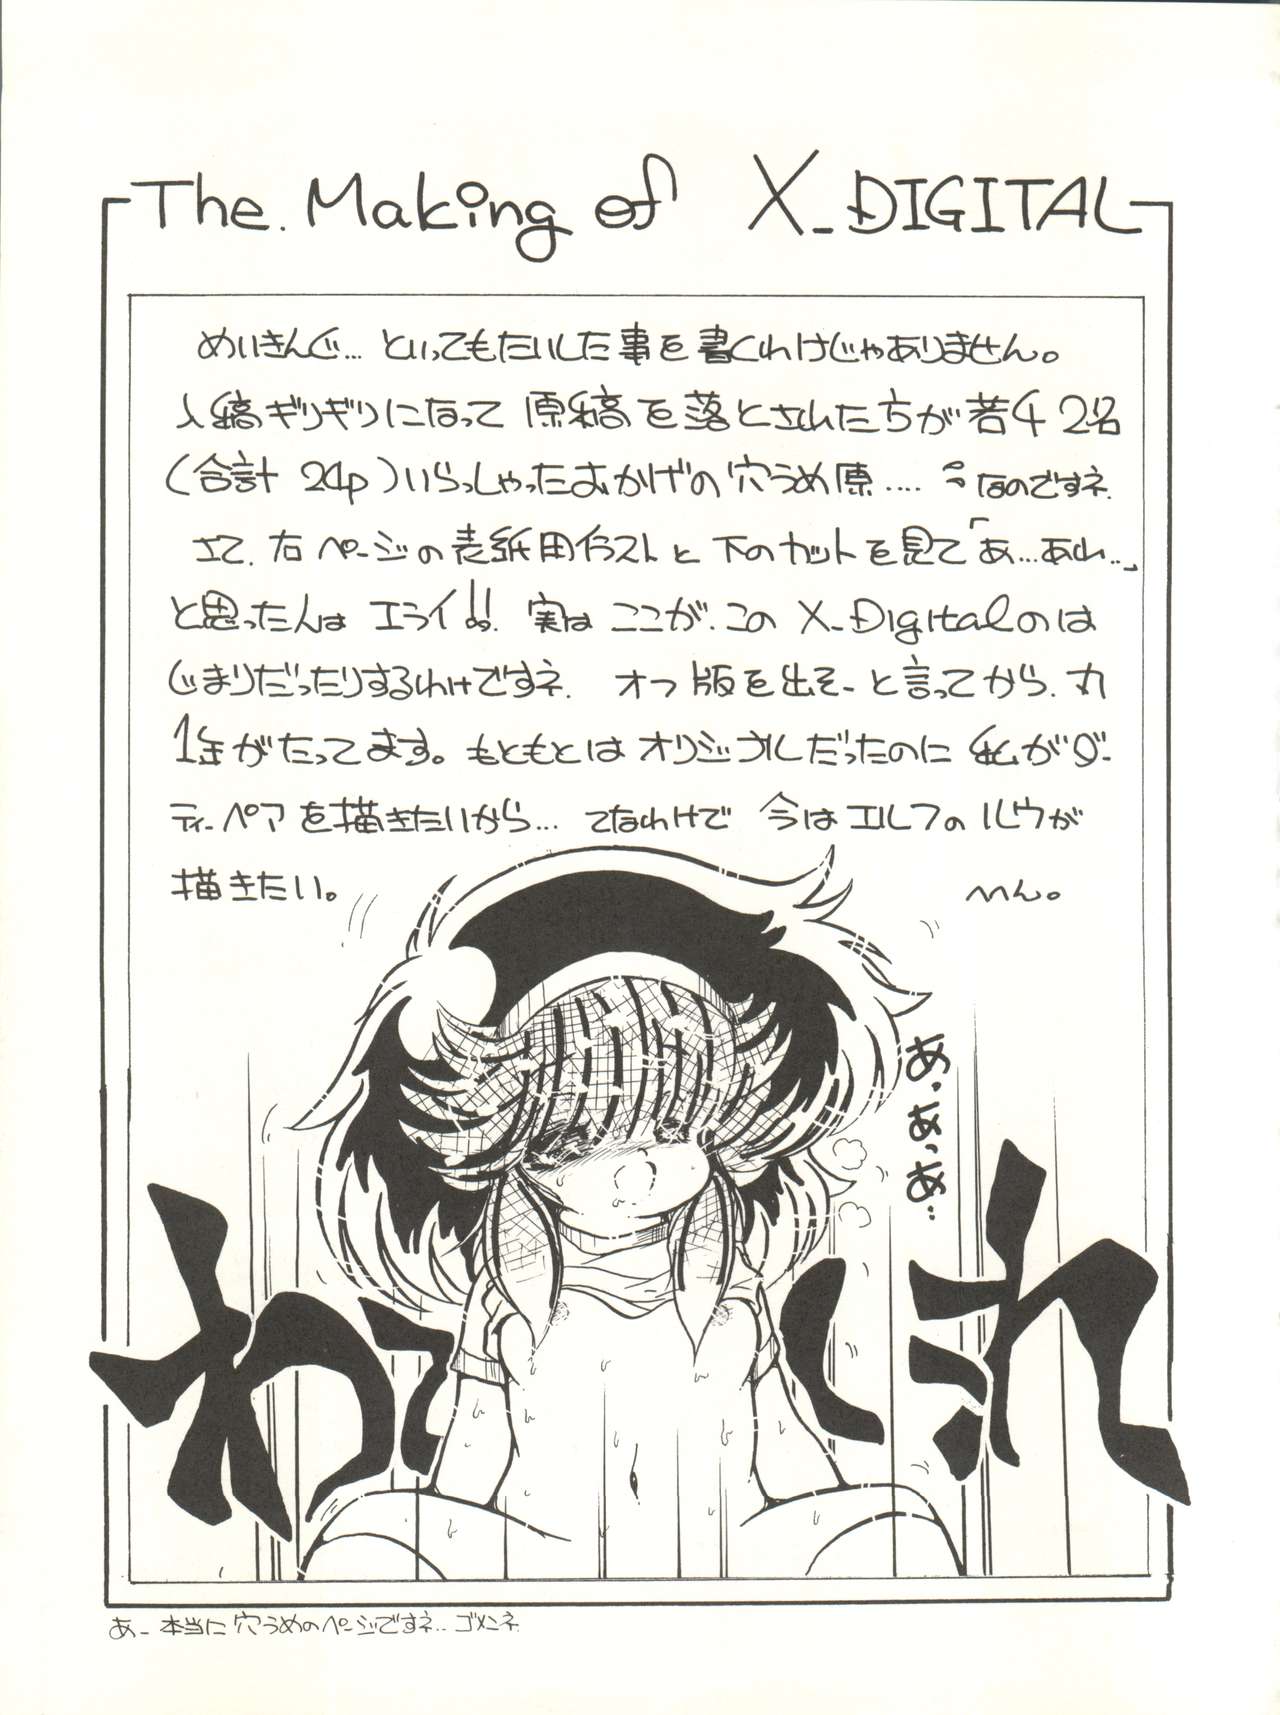 The. Making of X_DIGITAL
めいきんぐ… といってもたいした事を書くわけじゃありません。
入稿ギリギリになって 原稿を落とされたたちが若干2名
(合計 24p)いらっしゃったおかげの穴うめ原.... なのですネ.
さて. 右ページの表紙用イラストと 下のカットを見て「あ…あれ‥」
と思ったんは エライ!! 実は ここが. この X_Digitalのは
じまりだったりするわけですネ. オフ版を出そーと言ってから. 丸
1年がたってます。もともとは オリジナルだったのに 私がダー
ティーペアを描きたいから… てなわけで 今はエルフの ルウが
描きたい。 へん。
あっ あっ あ‥
あー 本当に 穴うめのページですネ.. ゴメンネ